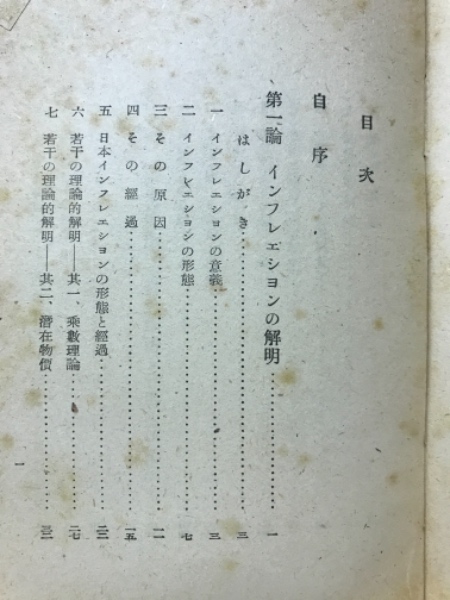 目次
自序
第一論 インフレエションの解明……………一
はしがき……………三
一 インフレエションの意義……………三
二 インフレエションの形態……………七
三 その原因……………一一
四 その經過……………一五
五 日本インフレエションの形態と經過……………二三
六 若干の理論的解明――其一、乘數理論……………二七
七 若干の理論的解明――其二、潛在物價……………三二
一